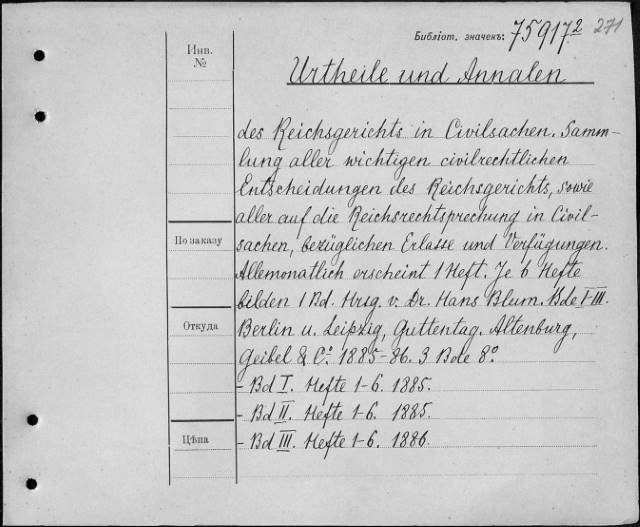 Библіот. значекъ: 75917² 271
Инв.
№
Urtheile und Annalen
des Reichsgerichts in Civilsachen. Samm-
lung aller wichtigen civilrechtlichen
Entscheidungen des Reichsgerichts, sowie
aller auf die Reichsrechtsprechung in Civil-
По заказу
sachen, bezüglichen Erlasse und Verfügungen.
Allemonatlich erscheint 1 Heft. Je 6 Hefte
bilden 1 Bd. Hrsg. v. Dr. Hans Blum. Bde I-III.
Откуда
Berlin u. Leipzig, Guttentag. Altenburg,
Geibel & Cº. 1885-86. 3 Bde 8º
- Bd I. Hefte 1-6. 1885.
- Bd II. Hefte 1-6. 1885.
Цѣна
- Bd III. Hefte 1-6. 1886.